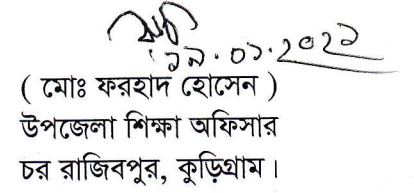 ১৯.০১.২০২১
( মোঃ ফরহাদ হোসেন )
উপজেলা শিক্ষা অফিসার
চর রাজিবপুর, কুড়িগ্রাম।